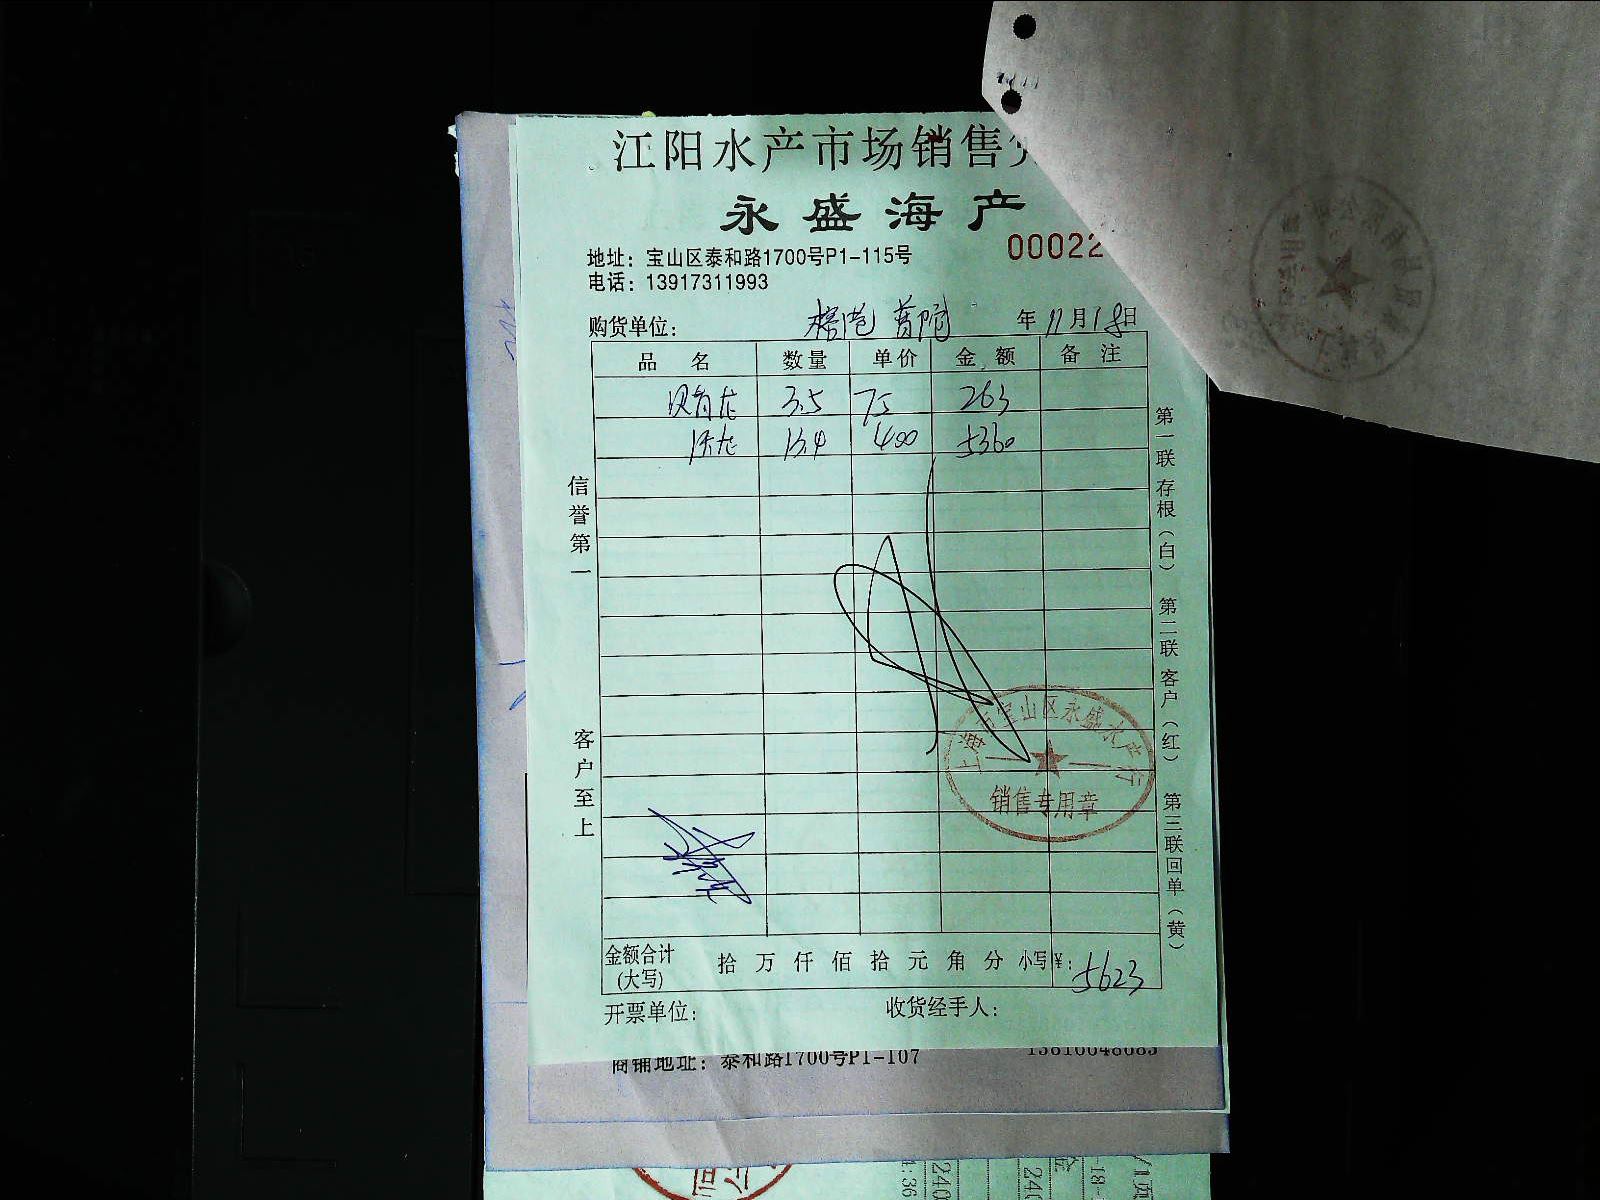 江阳水产市场销售
永盛海产
地址：宝山区泰和路1700号P1-115号
00022
电话：13917311993
购货单位： 榕港 普陀 年 11 月 18 日
品 名 数量 单价 金额 备注
3.5 75 263
13.4 400 5360
信誉第一
客户至上
第一联存根（白） 第二联客户（红） 第三联回单（黄）
上海市宝山区永盛水产行
销售专用章
金额合计（大写） 拾 万 仟 佰 拾 元 角 分 小写¥： 5623
开票单位： 收货经手人：
商铺地址：泰和路1700号P1-107